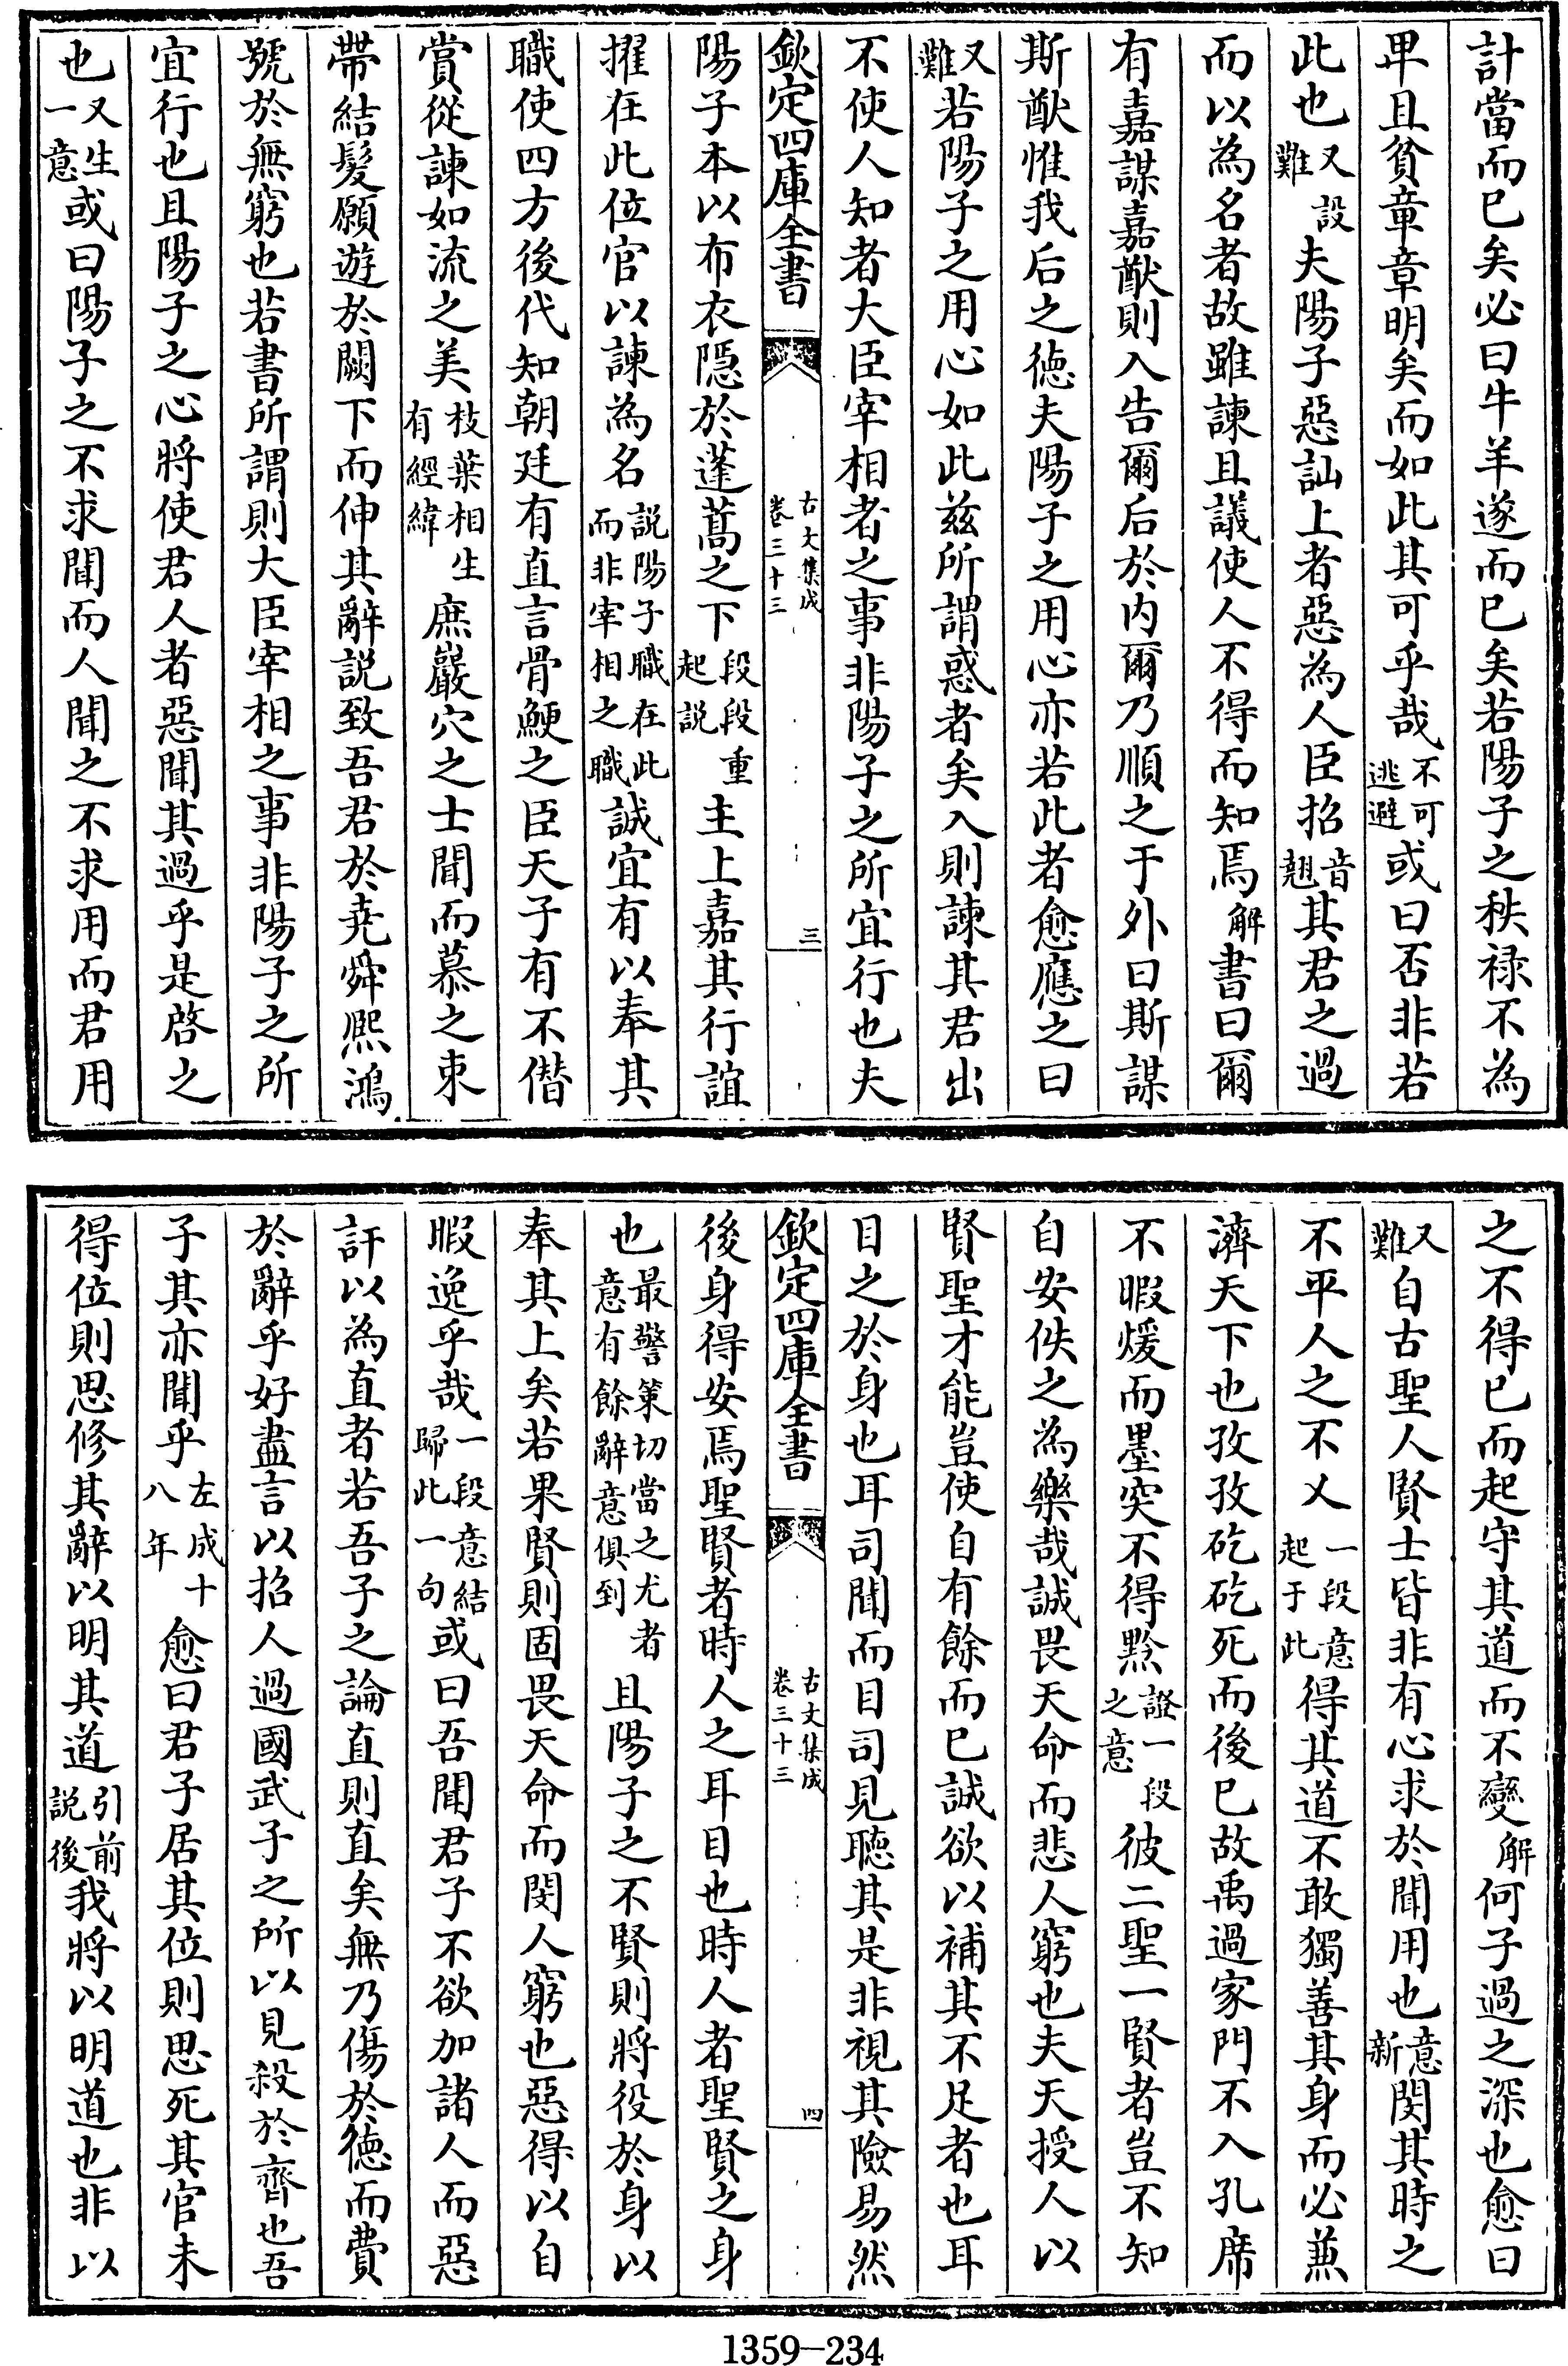 計當而已矣必曰牛羊遂而已矣若陽子之秩禄不為
卑且貧章章明矣而如此其可乎哉不可逃避或曰否非若
此也又設難夫陽子惡訕上者惡為人臣招音翹其君之過
而以為名者故雖諫且議使人不得而知焉解書曰爾
有嘉謀嘉猷則入告爾后於内爾乃順之于外曰斯謀
斯猷惟我后之徳夫陽子之用心亦若此者愈應之曰
又難若陽子之用心如此兹所謂惑者矣入則諫其君出
不使人知者大臣宰相者之事非陽子之所宜行也夫
欽定四庫全書 古文集成卷三十三 三
陽子本以布衣隱於蓬蒿之下段段重起説主上嘉其行誼
擢在此位官以諫為名説陽子職在此而非宰相之職誠宜有以奉其
職使四方後代知朝廷有直言骨鯁之臣天子有不僭
賞從諫如流之美枝葉相生有經緯庶巖穴之士聞而慕之束
帶結髮願遊於闕下而伸其辭説致吾君於堯舜熙鴻
號於無窮也若書所謂則大臣宰相之事非陽子之所
宜行也且陽子之心將使君人者惡聞其過乎是啓之
也又生一意或曰陽子之不求聞而人聞之不求用而君用
之不得已而起守其道而不變解何子過之深也愈曰
又難自古聖人賢士皆非有心求於聞用也意新閔其時之
不平人之不乂一段意起于此得其道不敢獨善其身而必兼
濟天下也孜孜矻矻死而後已故禹過家門不入孔席
不暇煖而墨突不得黔證一段之意彼二聖一賢者豈不知
自安佚之為樂哉誠畏天命而悲人窮也夫天授人以
賢聖才能豈使自有餘而已誠欲以補其不足者也耳
目之於身也耳司聞而目司見聽其是非視其險易然
欽定四庫全書 古文集成卷三十三 四
後身得安焉聖賢者時人之耳目也時人者聖賢之身
也最警策切當之尤者意有餘辭意俱到且陽子之不賢則將役於身以
奉其上矣若果賢則固畏天命而閔人窮也惡得以自
暇逸乎哉一段意結歸此一句或曰吾聞君子不欲加諸人而惡
訐以為直者若吾子之論直則直矣無乃傷於徳而費
於辭乎好盡言以招人過國武子之所以見殺於齊也吾
子其亦聞乎左成十八年愈曰君子居其位則思死其官未
得位則思修其辭以明其道引前説後我將以明道也非以
1359-234